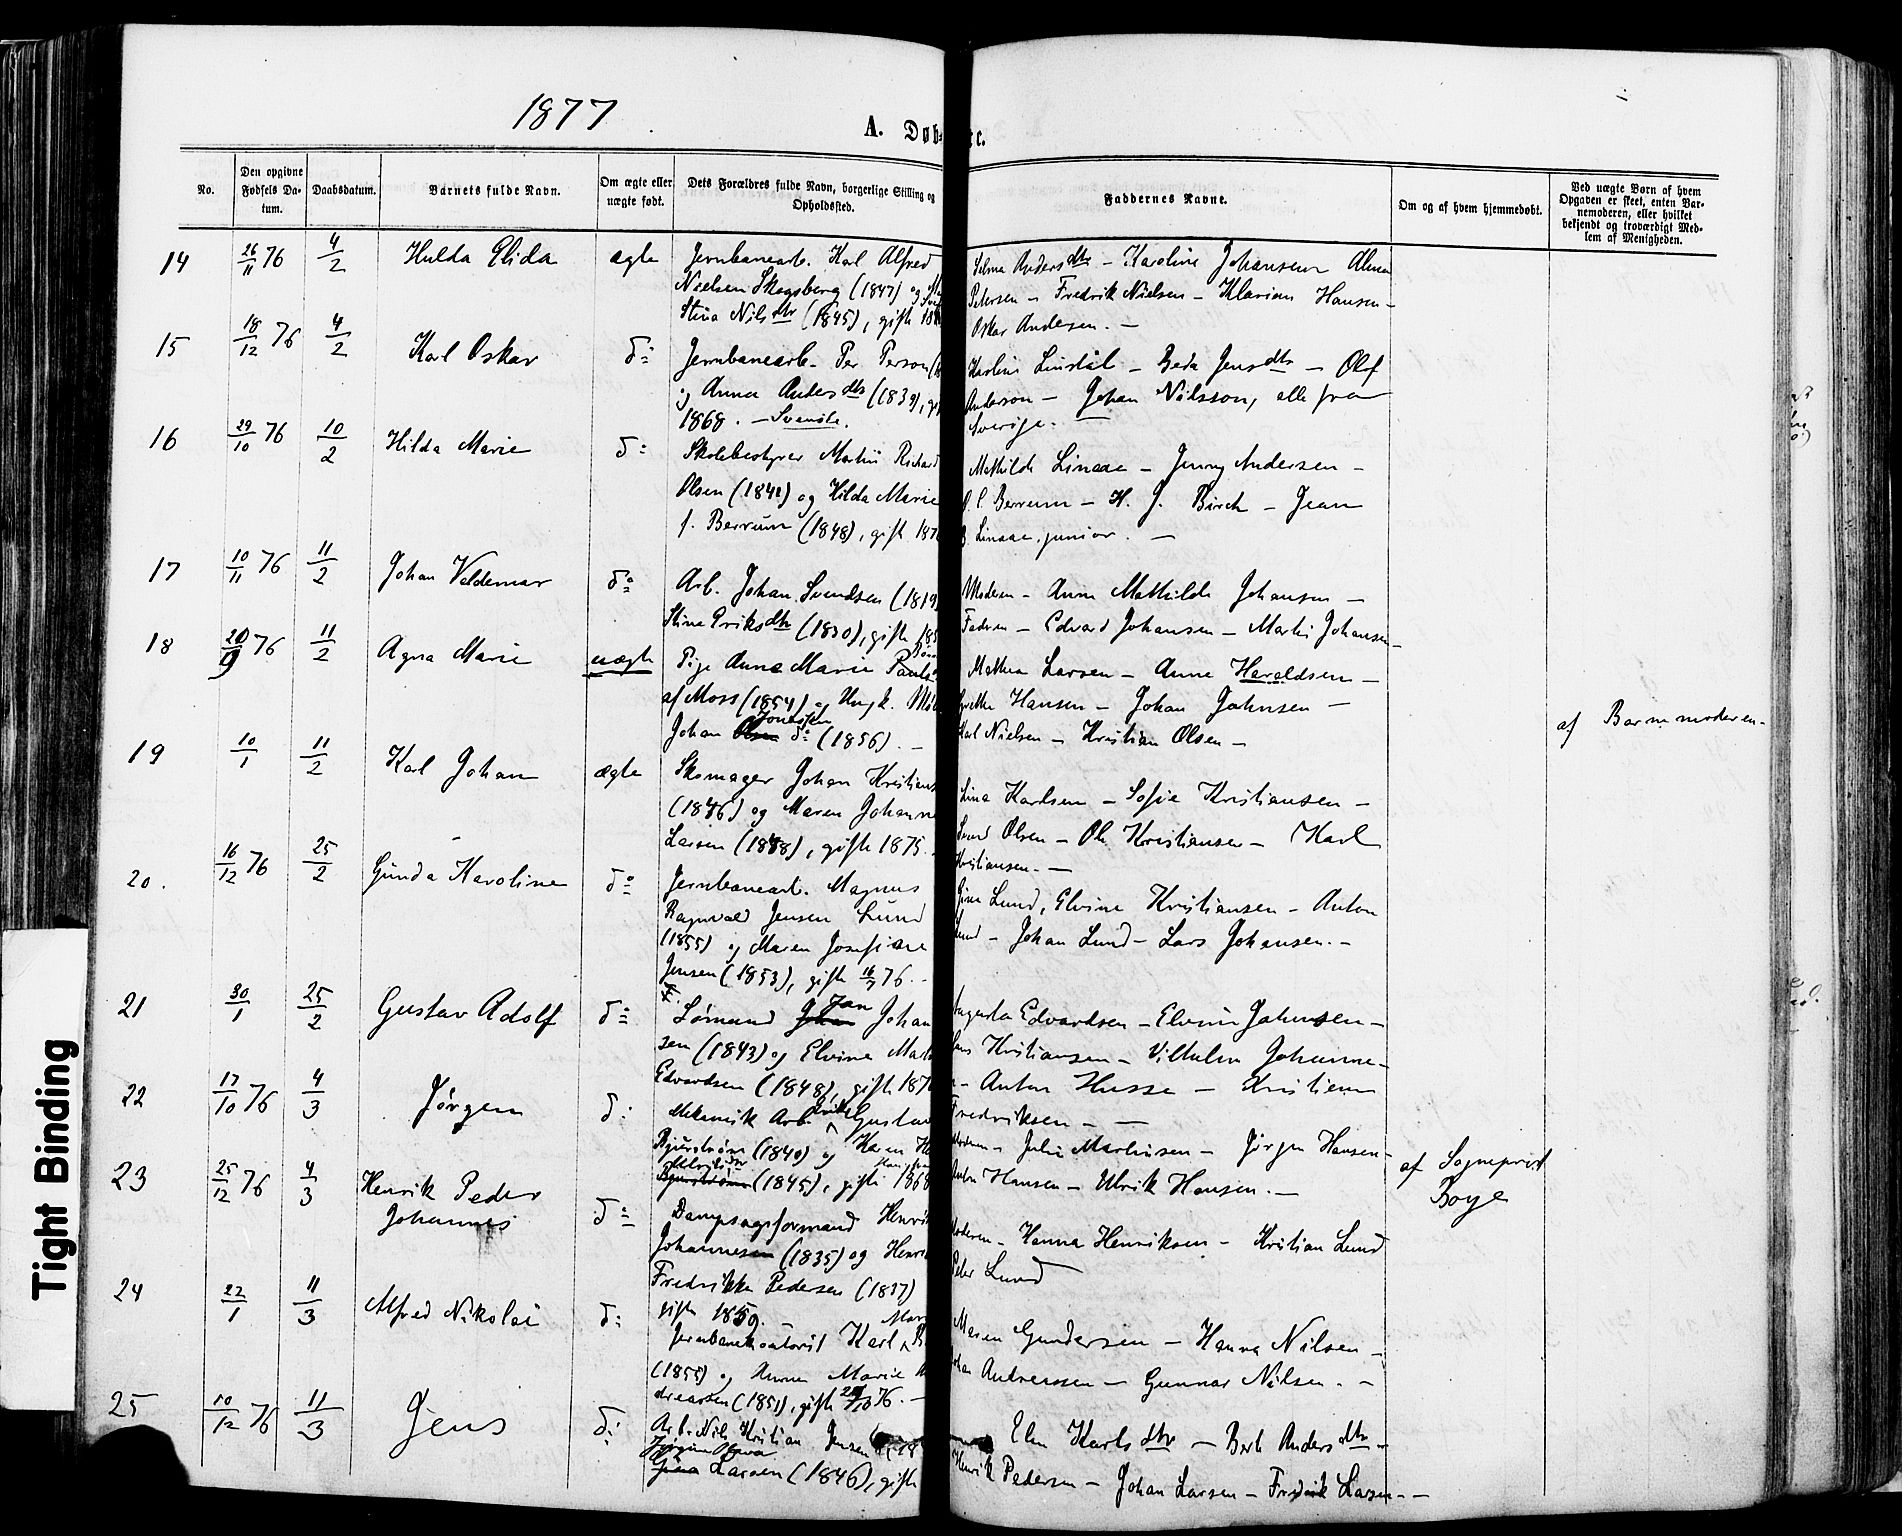 1877
A. Døb
c.
No.
Den opgivne Fødsels Da-tum.
Daabsdatum.
Barnets fulde Navn.
Om ægte eller uægte født.
Dets Forældres fulde Navn, borgerlige Stilling og Opholdssted.
Faddernes Navne.
Om og af hvem hjemmedøbt.
Ved uægte Børn af hvem Opgaven er skeet, enten Bar-nemoderen, eller hvilket bekjendt og troværdigt Med-lem af Menigheden.
14 26/11 76 4/2 Hulda Elida ægte Jernbanearb. Karl Alfred
Nielsen Skogsberg (1847) og
Stina Nilsdtr (1845), gift
Selma Andersdtr – Karoline Johansen
Petersen – Fredrik Nielsen – Hansen –
Oskar Andersen. –
15 18/12 76 4/2 Karl Oskar d: Jernbanearb. Per Person
og Anna Andersdtr (1839),
1868. – Svenske.
Lindål – Beda Jensdtr – Olof
Anderson – Johan Nilsson, alle fra
Sverige. –
16 29/10 76 10/2 Hilda Marie d: Skolebestyrer Martin Richard
Olsen (1841) og Hilda Marie
f. Berrum (1848), gift 187
Mathilde Linaae – Jenny Andersen –
Berrum – H. J. Birch – Jean
Linaae, junior. –
17 10/11 76 11/2 Johan Valdemar d: Arb. Johan Svendsen (1819)
Stina Eriksdtr (1830), gift 185
Moderen – Anne Mathilde Johansen –
Faderen – Edvard Johansen – Martin Johansen –
18 20/9 76 11/2 Agna Marie uægte Pige Anne Marie Pauls
af Moss (1854) og Ungk.
Johan Olsen d: (1856). –
Mathea Larsen – Anne Haraldsen –
Grethe Hansen – Johan Johnsen –
Karl Nielsen – Kristian Olsen –
af Barnemoderen –
19 10/1 11/2 Karl Johan ægte Skomager Johan Kristians
(1846) og Maren Johanne
Larsen (1848), gift 1875. –
Lina Karlsen – Sofie Kristiansen –
Olsen – Ole Kristiansen – Karl
Kristiansen. –
20. 16/12 76 25/2 Gunda Karoline d: Jernbanearb. Magnus
Ragnvald Jensen Lund
(1855) og Maren Josefine
Jensen (1853), gift 16/7 76. –
Gina Lund, Elvine Kristiansen – Anton
Lund – Johan Lund – Lars Johansen. –
21 30/1 25/2 Gustav Adolf d: F. Sømand Johan Jan Johan
sen (1843) og Elvine
Edvardsen (1848), gift 187
Augusta Edvardsen – Elvine Johnsen –
Kristiansen – Vilhelm Johanne-
– Anton Husse – Kristian
Fredriksen – –
22 17/10 76 4/3 Jørgen d: Mekanisk Arb. Gustav
Bjurstrøm (1840) og Karen
Bjurstrøm (1845), gift 1868
– Julie Martinsen – Jørgen Hansen –
Hansen – Ulrik Hansen. –
af Sogneprest
Boye
23 25/12 76 4/3 Henrik Peder
Johannes d: Dampsagsformand
Johannesen (1835) og
Fredrikke Pedersen (1837)
gift 1859. –
Moderen – Hanna Henriksen – Kristian Lund
Peter Lund
24 22/1 11/3 Alfred Nikolai d: Jernbanekontorist Karl
(1855) og Anne Marie
dreasen (1851), gift 76. –
Maren Gundersen – Hanna Nilsen –
Andreassen – Gunnar Nilsen. –
25 10/12 76 11/3 Jens d: Arb. Nils Kristian Jensen
Larsen (1846), gift
Karlsdtr – Andersdtr –
Henrik Pedersen – Johan Larsen – Fredrik Larsen – –
Tight Binding